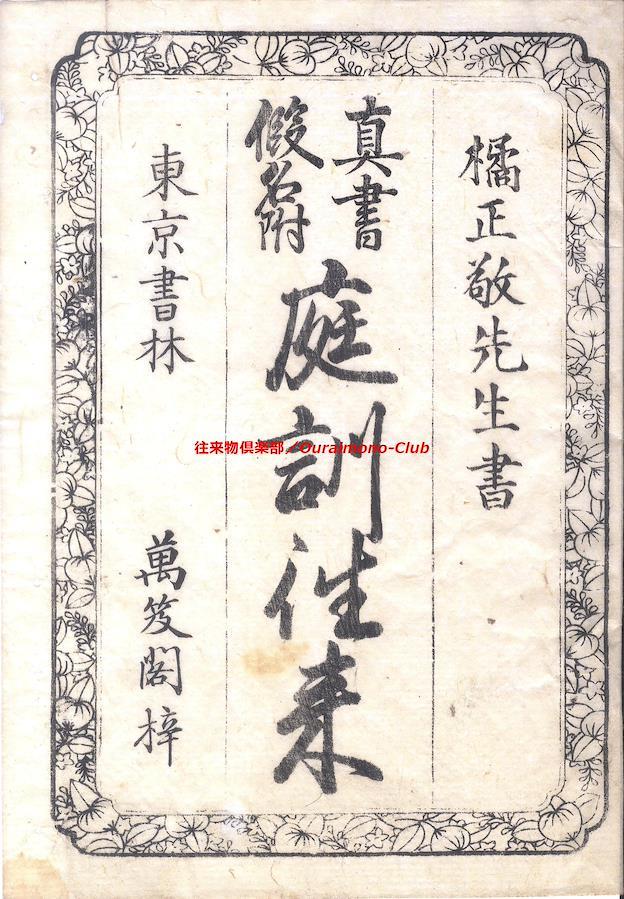 橘正敬先生書
真書
假名附
庭訓徃来
東京書林
萬笈閣梓
往来物倶楽部／Ouraimono-Club